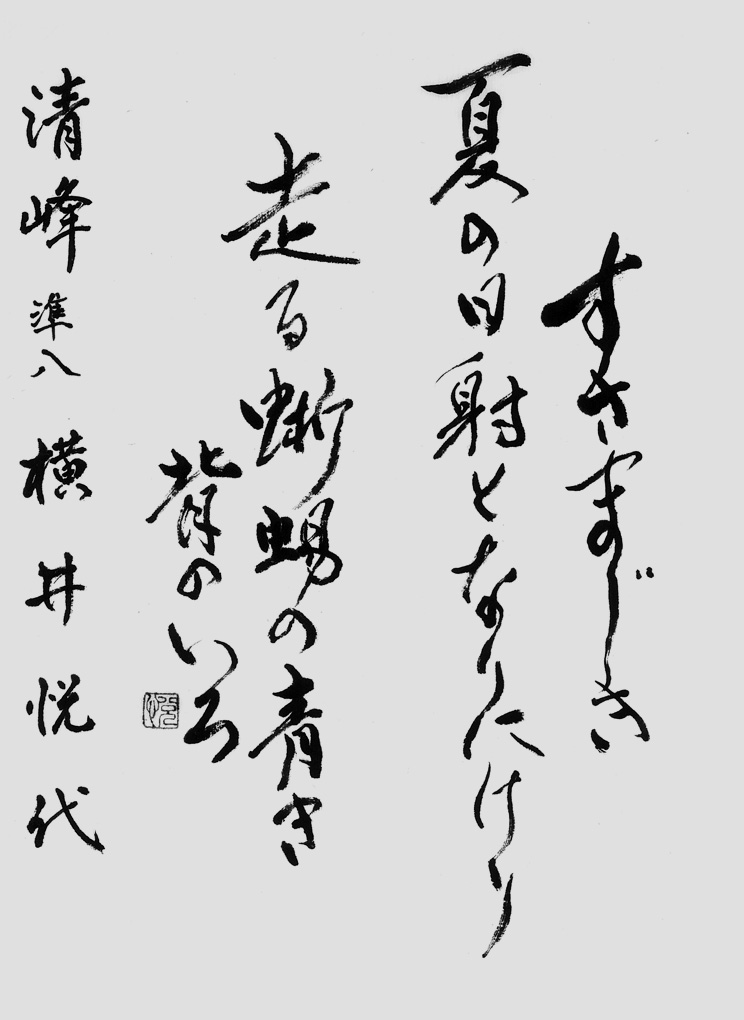 すさまじき
夏の日射となりにけり
走る蜥蜴の青き
背のいろ
清峰 準八 横井悦代